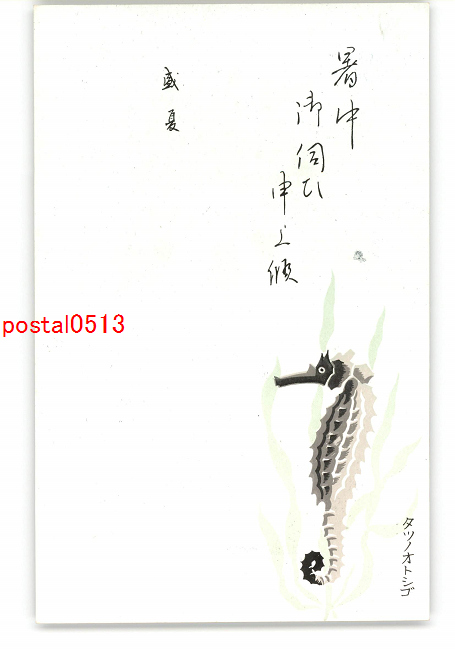 暑中
御伺ひ
申上候
盛夏
postal0513
タツノオトシゴ